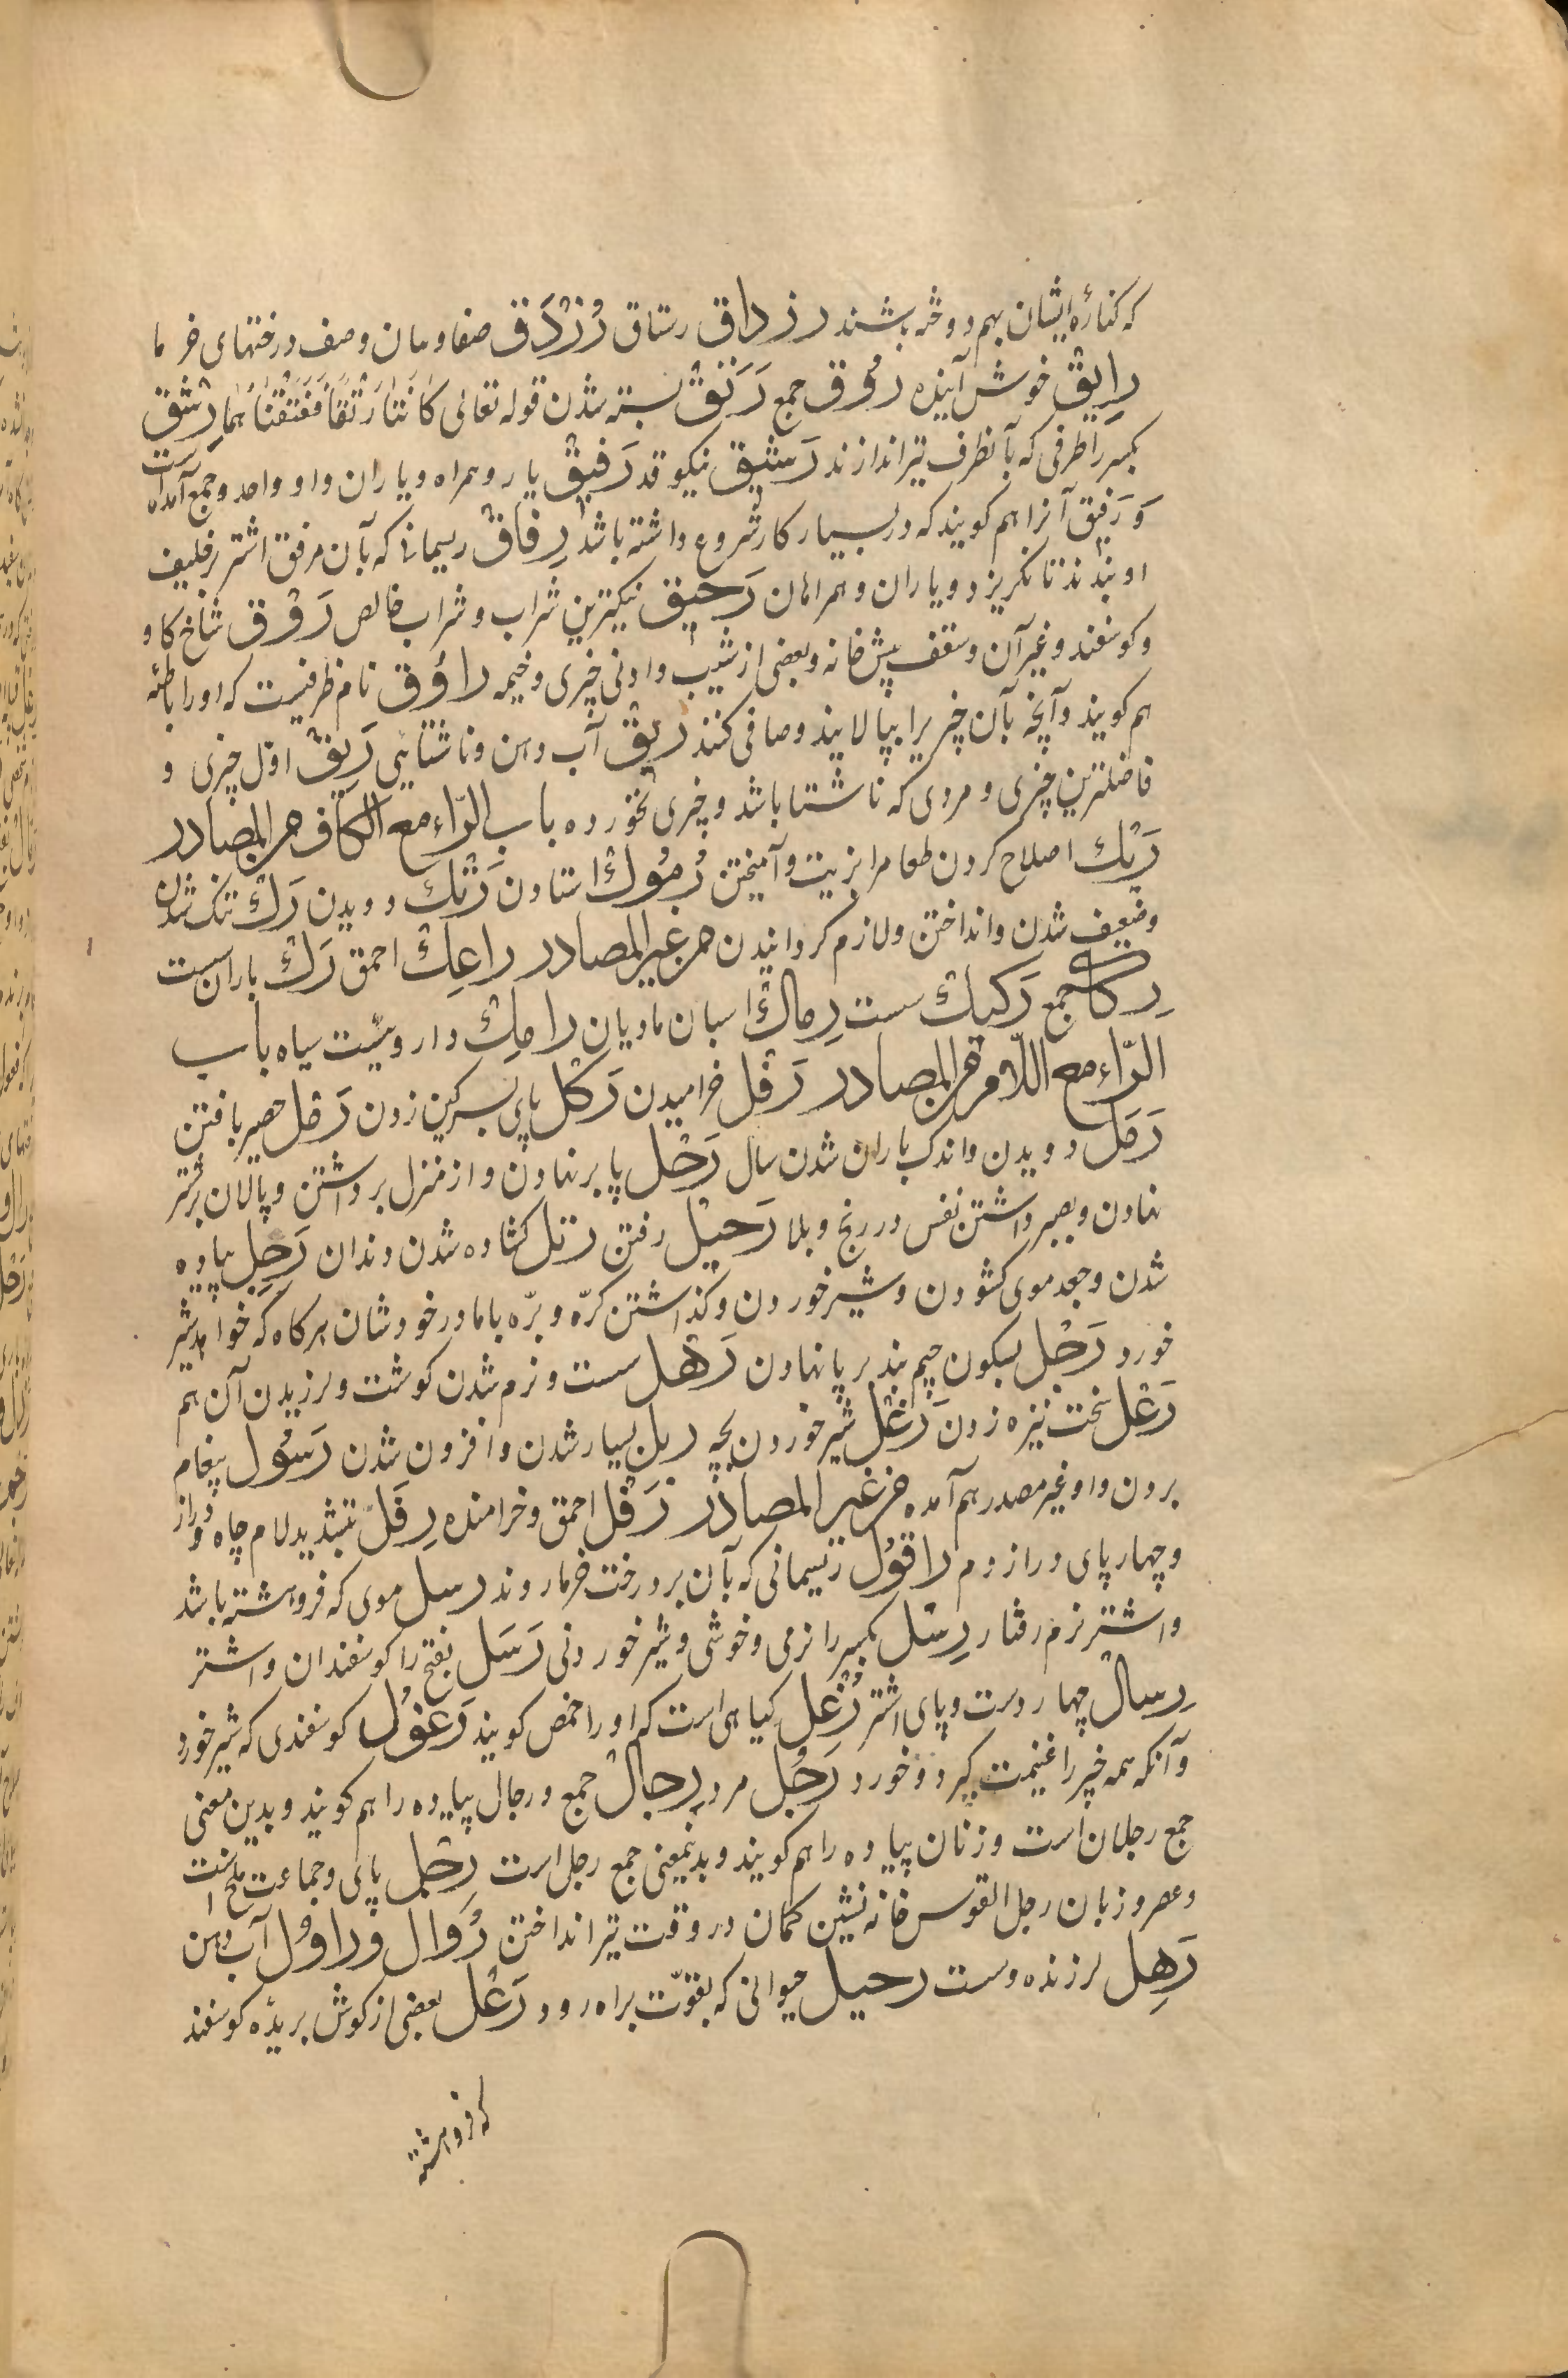 که کنارهٔ ایشان بهم دوخته باشند رزداق رستاق رُزْدَق صفا ومان وصف درختهای خرما
رایِقْ خوش آینده رُوق جمع رَتَقْ بسته شدن قوله تعالی کَانَتَا رَتْقاً فَفَتَقْنَاهُمَا رِشْق
بکسر را طرفی که بآنطرف تیر اندازند رَشیق نیکو قد رَفیقْ یار و همراه و یاران و او واحد و جمع آمده است
وَ رَفیق آنرا هم کویند که در بسیار کار شروع داشته باشد رِفاقْ ریسمانی که بآن مرفق اشتر
او بندند تا نکریزد و یاران و همراهان رَحیق نیکترین شراب و شراب خالص رَوْق شاخ کاو
و کوسفند و غیر آن و سقف پیش خانه و بعضی از شب و اونی چیزی و خیمه راوُق نام ظرفیست که او را باطئه
هم کویند و آنچه بآن چیزیرا بپالایند و صافی کنند ریقْ آب دهن و ناشتائی رَیِقْ اول چیزی و
فاضلترین چیزی و مردی که ناشتا باشد و چیزی نخورده باب الرّاء مع الکاف من المصادر
رَبْكْ اصلاح کردن طعام را بزیت و آمیختن رُمُوكْ استادن رَتْكْ دویدن رَكْ تنک شدن
و ضعیف شدن و انداختن و لازم کردانیدن من غیر المصادر راعِكْ احمق رَكْ باران سست
رِكاكْ جمع رَكیكْ سست رِماكْ اسبان مادیان رامِكْ داروئیست سیاه باب
الرّاء مع اللّام من المصادر رَفْل خرامیدن رَكْل پای بسرکین زدن رَمْل حصیر بافتن
رَمَل دویدن و اندک باران شدن سال رَحْل پا بر نهادن و از منزل برداشتن و پالان بر شتر
نهادن و بصبر داشتن نفس در رنج و بلا رَحیلْ رفتن رتل کشاده شدن دندان رَجِل پیاده
شدن و جعد موی کشودن و شیر خوردن و کذاشتن کرّه و برّه با مادر خودشان هر کاه که خواهد شیر
خورد رَجْل بسکون جیم بند بر پا نهادن رَهْل سست و نرم شدن کوشت و لرزیدن آن هم
رَعْل سخت نیزه زدن رَغْل شیر خوردن بچه ربل بسیار شدن و افزون شدن رَسُول پیغام
بردن و او غیر مصدر هم آمده من غیر المصادر رَفْل احمق و خرامنده رِفَلّ بتشدید لام چاه دراز
و چهار پای دراز دم راقُول ریسمانی که بآن بر درخت خرما روند رسل موی که فروهشته باشد
و اشتر نرم رفتار رِسْل بکسر را نرمی و خوشی و شیر خوردنی رَسَل بفتح را کوسفندان و اشتر
رِسال چهار دست و پای اشتر رُغْل کیاهی است که او را حمض کویند رَغول کوسفندی که شیر خورد
و آنکه همه چیز را غنیمت کیرد و خورد رَجُل مرد رِجالْ جمع و رجال پیاده را هم کویند و بدین معنی
جمع رجلان است و زنان پیاده را هم کویند و بدینمعنی جمع رجل است رِجْل پای و جماعت ملخ است
و عصر و زبان رجل القوس خانه نشین کمان در وقت تیر انداختن رُوال و راوُل آب دهن
رَهِل لرزنده و سست رحیل حیوانی که بقوّت براه رود رَعْل بعضی از کوش بریده کوسفند
که فروهشته